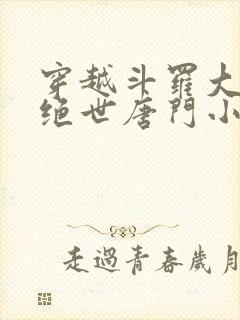 穿越斗羅大
绝世唐門小
走過青春歲月